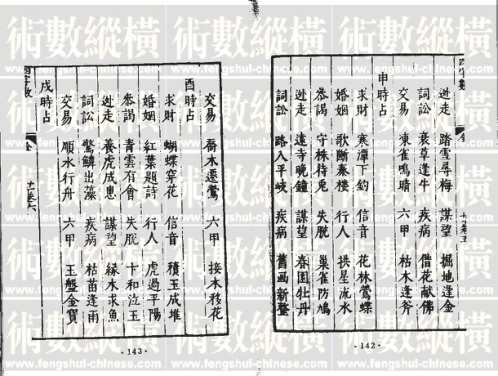 逃走 踏雪尋梅 謀望 掘地逢金
詞訟 衰草逢牛 疾病 借花献佛
交易 凍雀鳴晴 六甲 枯木逢斧
申時占
求財 寒潭下釣 信音 花林鶯蝶
婚姻 歌斷秦楼 行人 拱星流水
叅謁 守株待兎 失脫 巢雀防鳩
逃走 遠寺晚鐘 謀望 春園牡丹
詞訟 路入平岐 疾病 舊画新整
·142·
交易 喬木遷鶯 六甲 接木移花
酉時占
求財 蝴蝶穿花 信音 積玉成堆
婚姻 紅葉題詩 行人 虎過平陽
叅謁 青雲有會 失脫 卞和泣玉
逃走 養虎成患 謀望 緣木求魚
詞訟 驚鱗出藻 疾病 枯苗逢雨
交易 順水行舟 六甲 玉盤金寶
戌時占
·143·
術數縱橫
www.fengshui-chinese.com